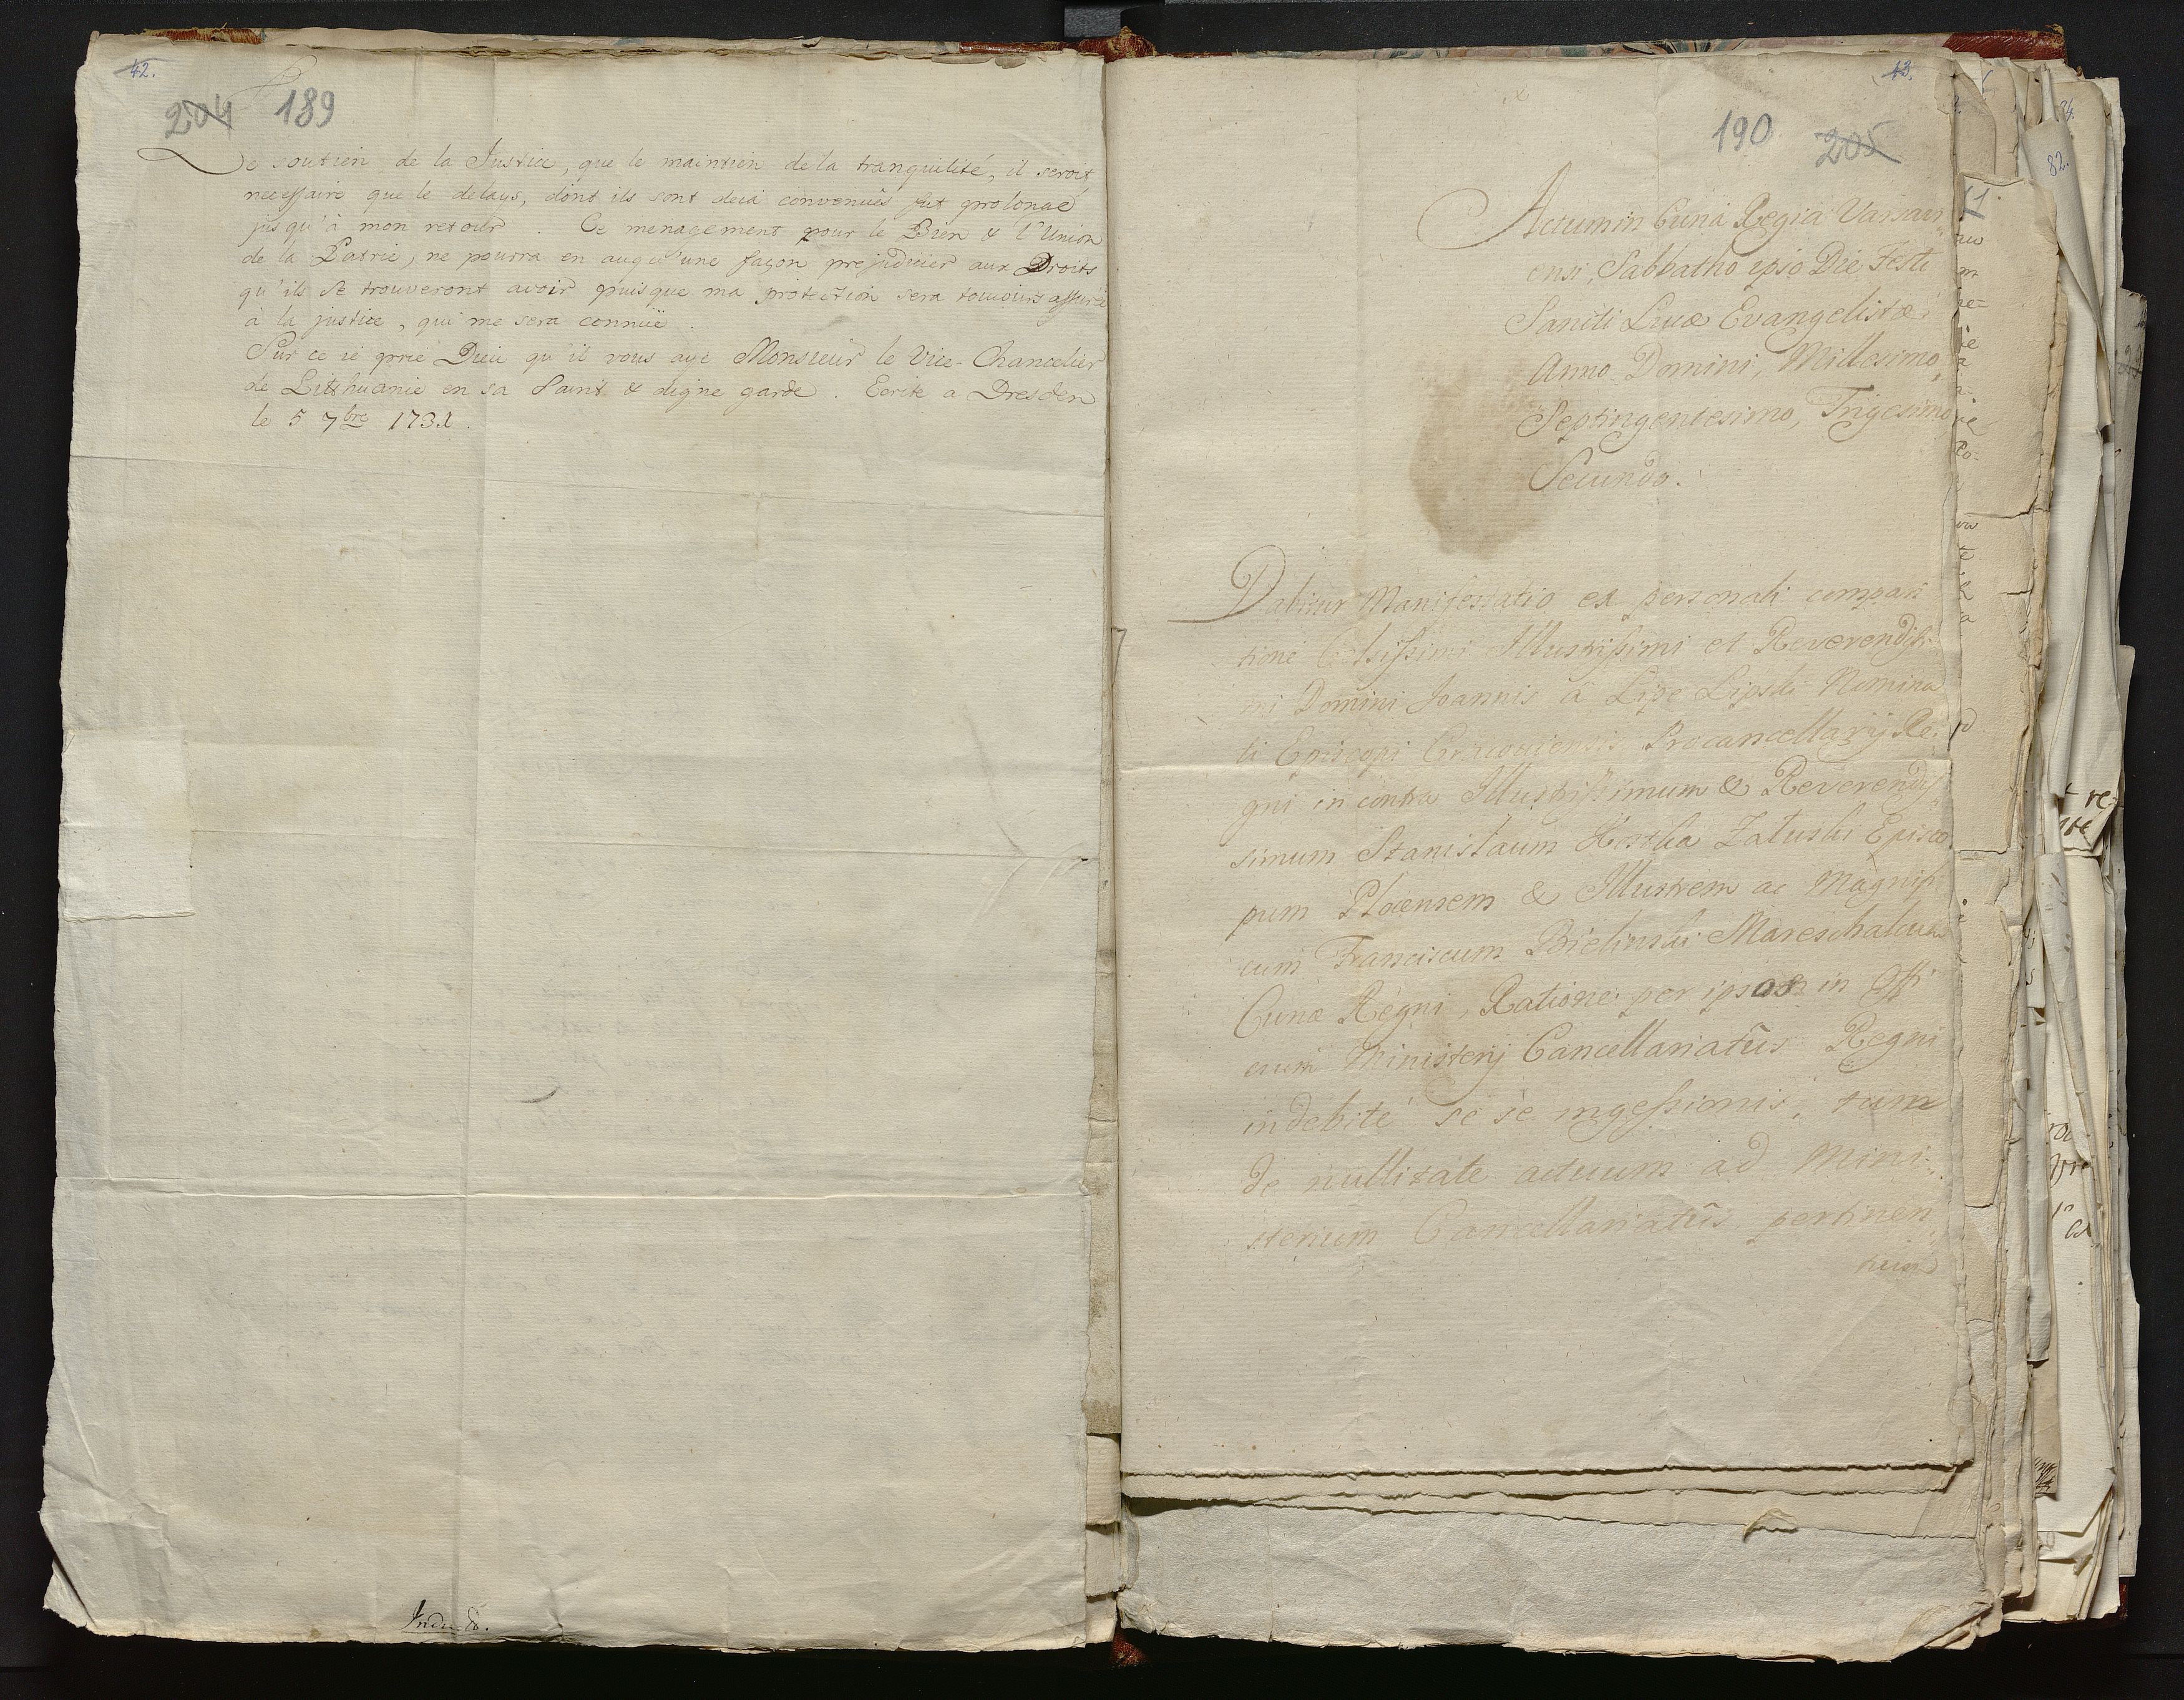 42.
204 189
Le soutien de la Justice, que le maintien de la tranquilité, il seroit
necessaire que le delays, dont ils sont deia convenûs fut prolongé
jusqu'à mon retour. Ce menagement pour le Bien & l'Union
de la Patrie, ne pourra en auqu'une façon prejudicier aux Droits
qu'ils se trouveront avoir puisque ma protection sera toujours assurée
à la justice, qui me sera connüe.
Sur ce ie prie Dieu qu'il vous aye Monsieur le Vice-Chancelier
de Litthuanie en sa Saint & digne garde. Ecrite a Dresden
le 5 7bre 1731.
43.
190 205
Actum in Curiâ Regiâ Varsavi
ensi, Sabbatho ipso Die Festi
Sancti Lucæ Evangelistæ
Anno Domini, Millesimo,
Septingentesimo, Trigesimo
Secundo.
Dabitur Manifestatio ex personali compari
tione Celsissimi Illustrissimi et Reverendissi
mi Domini Joannis â Lipe Lipski Nomina
ti Episcopi Cracoviensis Procancellarij Re
gni in contra Illustrissimum & Reverendis
simum Stanislaum Hostha Zaluski Episco
pum Plocensem & Illustrem ac Magnifi
cum Franciscum Bielinski Mareschalcum
Curiæ Regni, Ratione per ipsos in offi
cium Ministerij Cancellariatûs Regni
indebitè se se ingessionis, tum
de nullitate actuum ad Mini
sterium Cancellariatûs pertinen
tium
82.